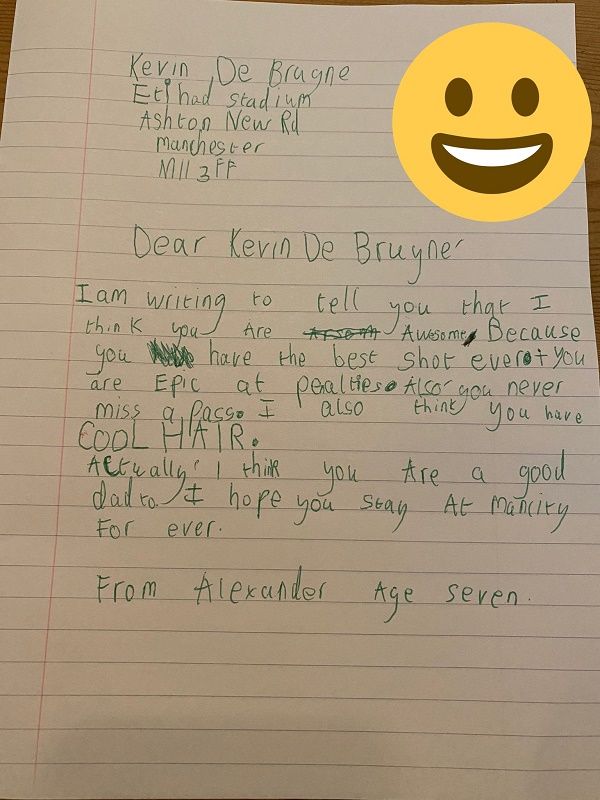 Kevin De Bruyne
Etihad stadium
Ashton New Rd
Manchester
M11 3FF
Dear Kevin De Bruyne
I am writing to tell you that I
think you Are Awesome, Because
you have the best shot ever + you
are Epic at penalties. Also you never
miss a pass. I also think you have
COOL HAIR.
Actually I think you Are a good
dad to. I hope you stay At mancity
For ever.
From Alexander Age seven.